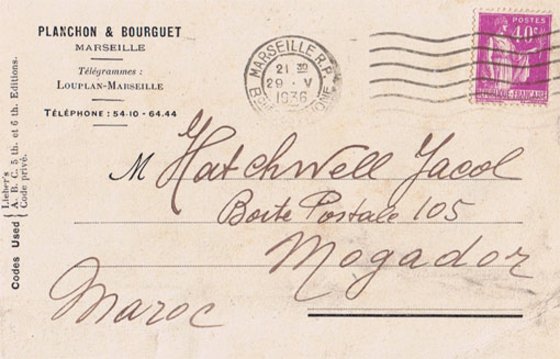 PLANCHON & BOURGUET
MARSEILLE
Télégrammes :
LOUPLAN-MARSEILLE
TÉLÉPHONE : 54-10 - 64.44
Codes Used
Lieber's
A. B. C. 5 th. et 6 th. Editions.
Code privé.
MARSEILLE R.P.
21 30
29 · V
1936
POSTES
40c
M Hatchwell Jacol
Boite Postale 105
Mogador
Maroc